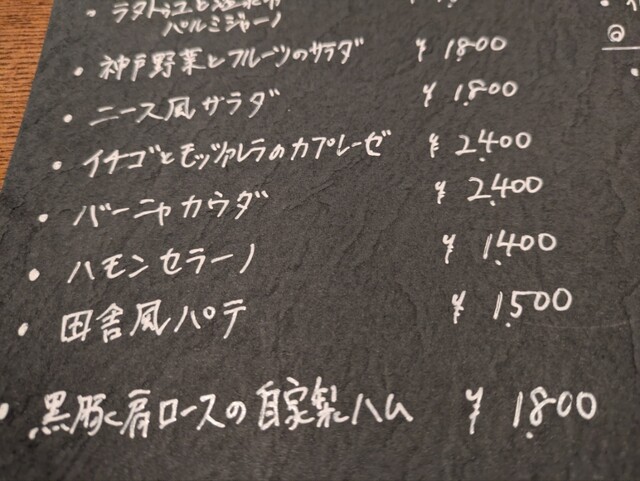 ラタトゥユと
パルミジャーノ
・神戸野菜とフルーツのサラダ ¥1.800
・ニース風サラダ ¥1.800
・イチゴとモッツァレラのカプレーゼ ¥2.400
・バーニャカウダ ¥2.400
・ハモンセラーノ ¥1.400
・田舎風パテ ¥1.500
・黒豚肩ロースの自家製ハム ¥1.800